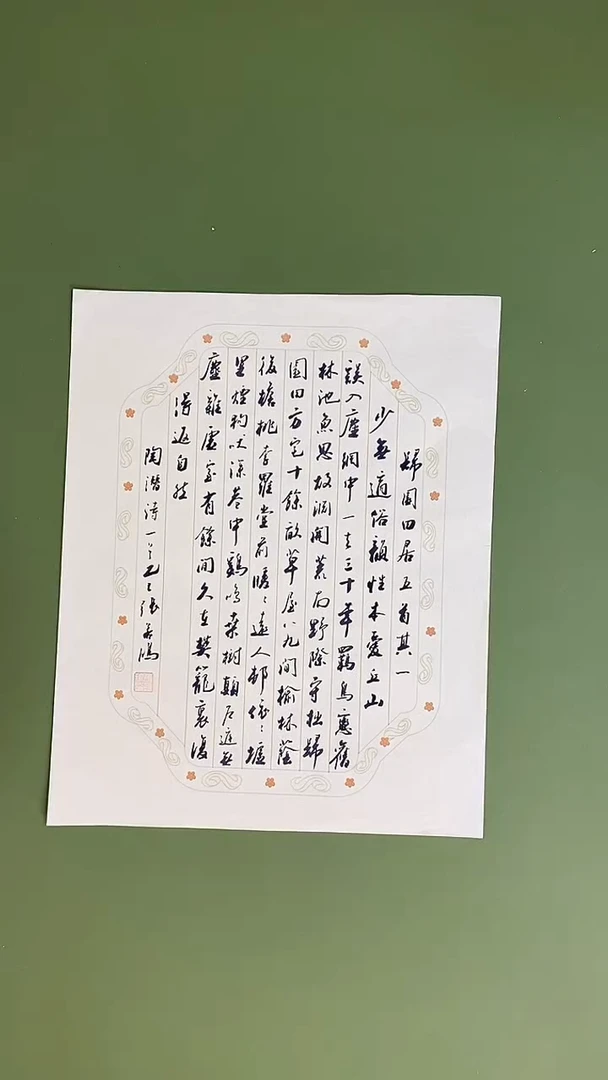 歸園田居五首其一
少無適俗韻性本愛丘山
誤入塵網中一去三十年羈鳥戀舊
林池魚思故淵開荒南野際守拙歸
園田方宅十餘畝草屋八九間榆柳蔭
後檐桃李羅堂前曖〻遠人邨依〻墟
里煙狗吠深巷中鷄鳴桑樹顛戶庭無
塵雜虛室有餘閒久在樊籠裏復
得返自然
陶潛詩一首乙巳張